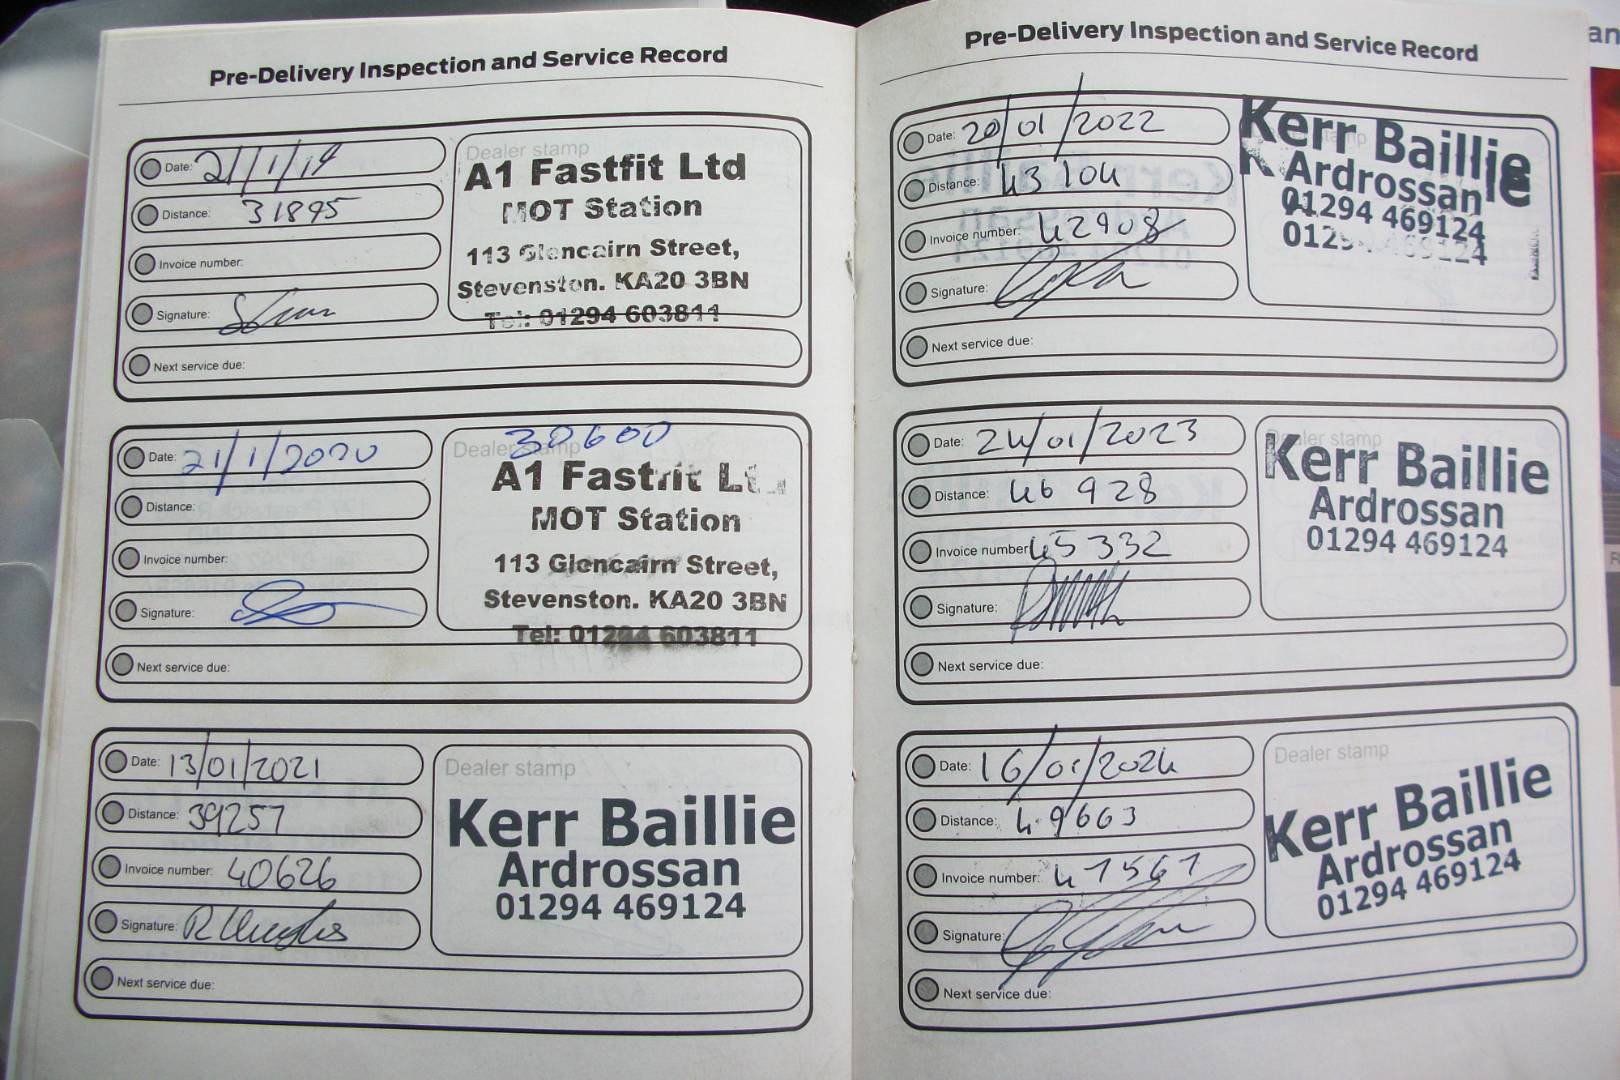 Pre-Delivery Inspection and Service Record
Date: 21/1/19
Distance: 31895
Invoice number:
Signature:
Next service due:
Dealer stamp
A1 Fastfit Ltd
MOT Station
113 Glencairn Street,
Stevenston. KA20 3BN
Tel: 01294 603811
Date: 21/1/2020
Distance:
Invoice number:
Signature:
Next service due:
Dealer stamp
30600
A1 Fastfit Ltd
MOT Station
113 Glencairn Street,
Stevenston. KA20 3BN
Tel: 01294 603811
Date: 13/01/2021
Distance: 39257
Invoice number: 40626
Signature:
Next service due:
Dealer stamp
Kerr Baillie
Ardrossan
01294 469124
Pre-Delivery Inspection and Service Record
Date: 20/01/2022
Distance: 43104
Invoice number: 42908
Signature:
Next service due:
Kerr Baillie
Ardrossan
01294 469124
Date: 24/01/2023
Distance: 46 928
Invoice number: 45332
Signature:
Next service due:
Dealer stamp
Kerr Baillie
Ardrossan
01294 469124
Date: 16/01/2024
Distance: 49663
Invoice number: 47561
Signature:
Next service due:
Dealer stamp
Kerr Baillie
Ardrossan
01294 469124